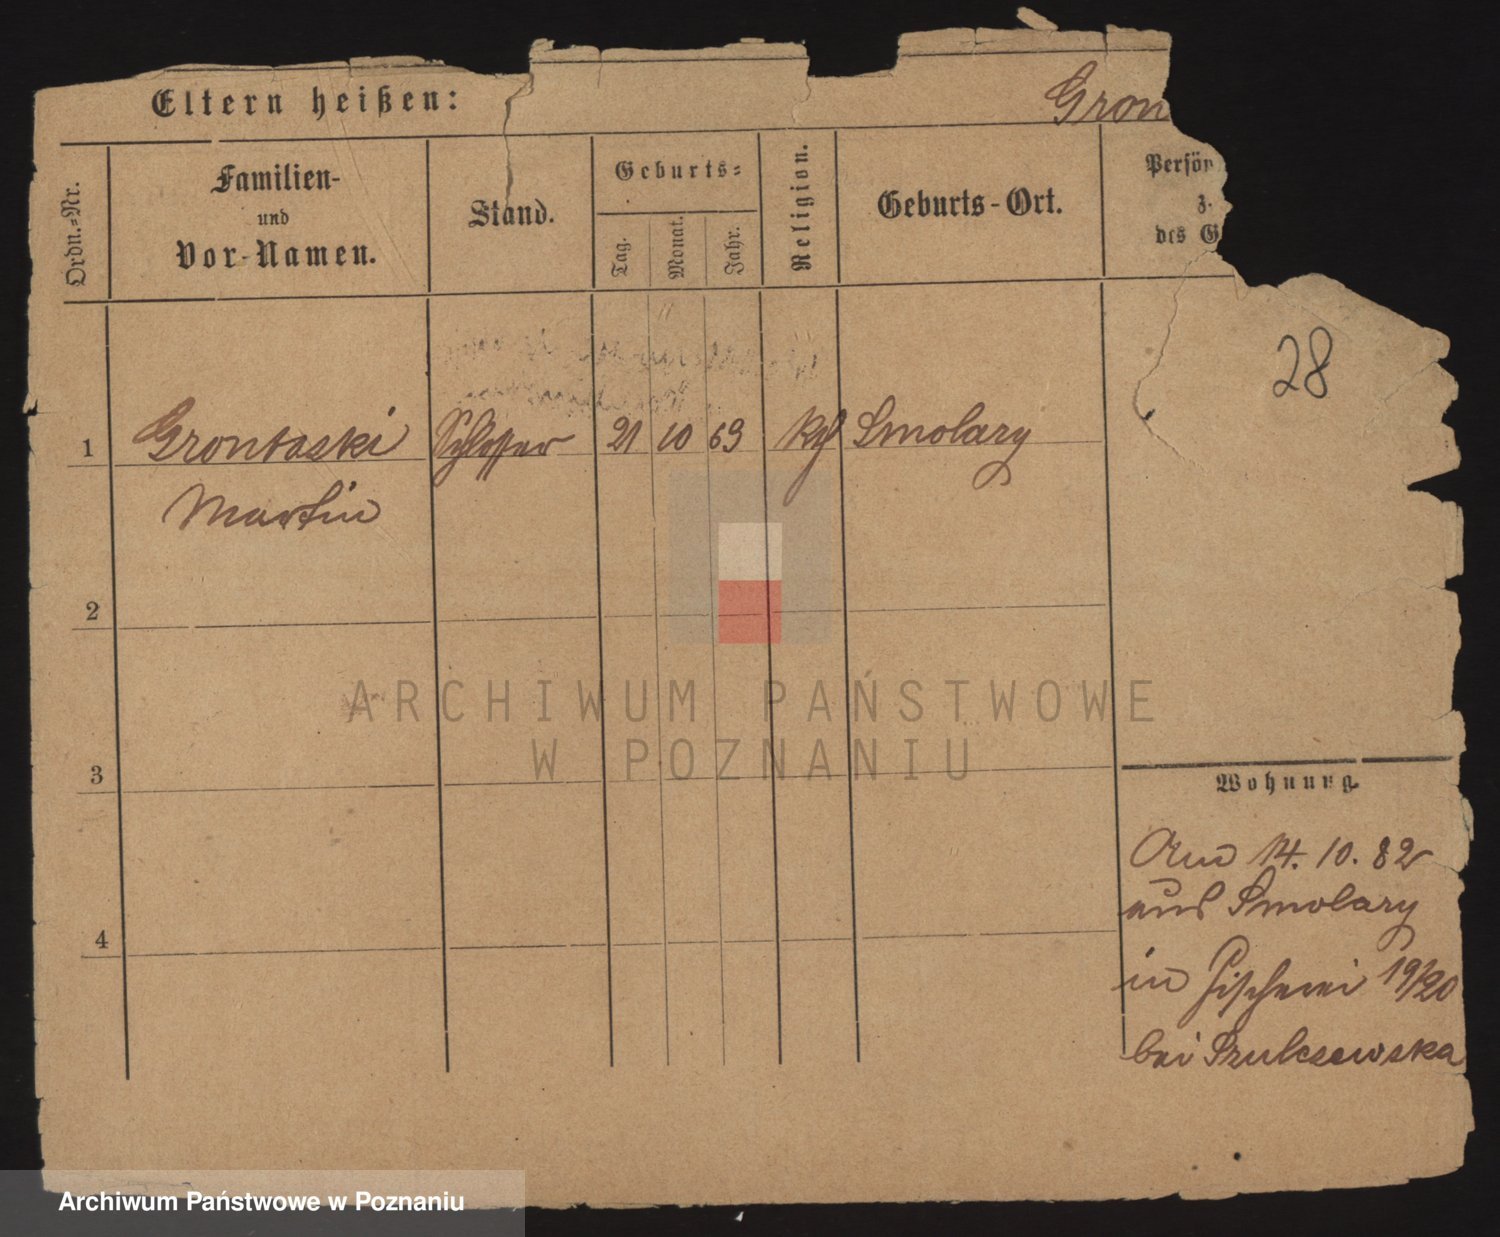 Eltern heißen:
Gron
Ordn.=Nr.
Familien-
und
Vor-Namen.
Stand.
Geburts=
Tag.
Monat.
Jahr.
Religion.
Geburts-Ort.
Persön
z.
des G
28
1 Grontoski Schlosser 21 10 63 kth Smolary
Martin
2
3
4
Wohnung.
Am 14. 10. 82
aus Smolary
in Fischerei 19/20
bei Szulczewska
ARCHIWUM PAŃSTWOWE
W POZNANIU
Archiwum Państwowe w Poznaniu